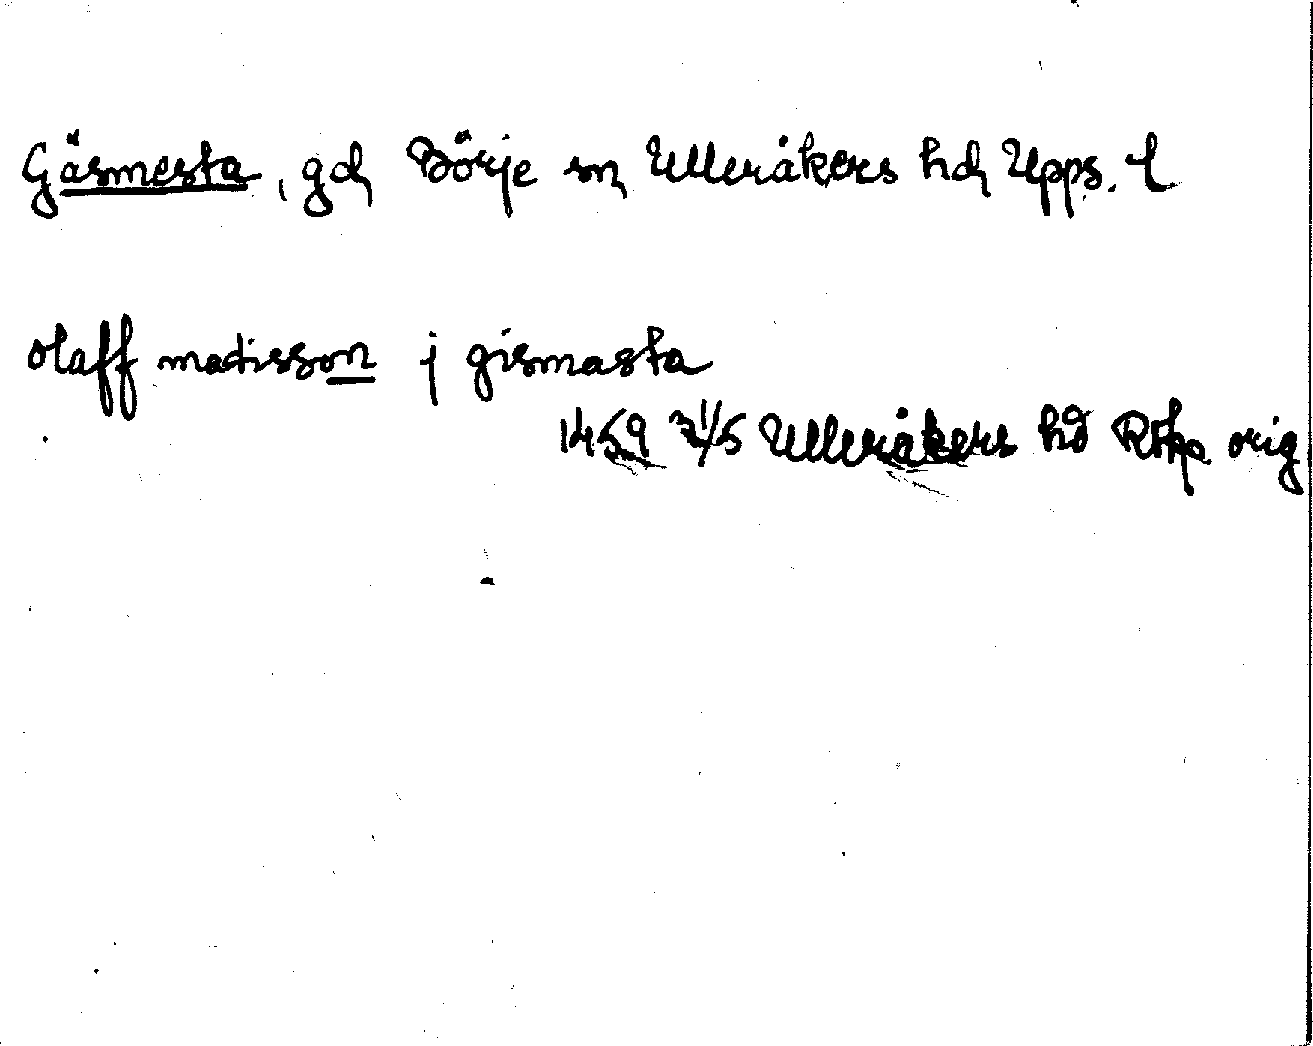 Gäsmesta, gd Börje sn Ulleråkers hd Upps. l
olaff madisson j gismasta
1459 31/5 Ulleråkers hd RAp orig